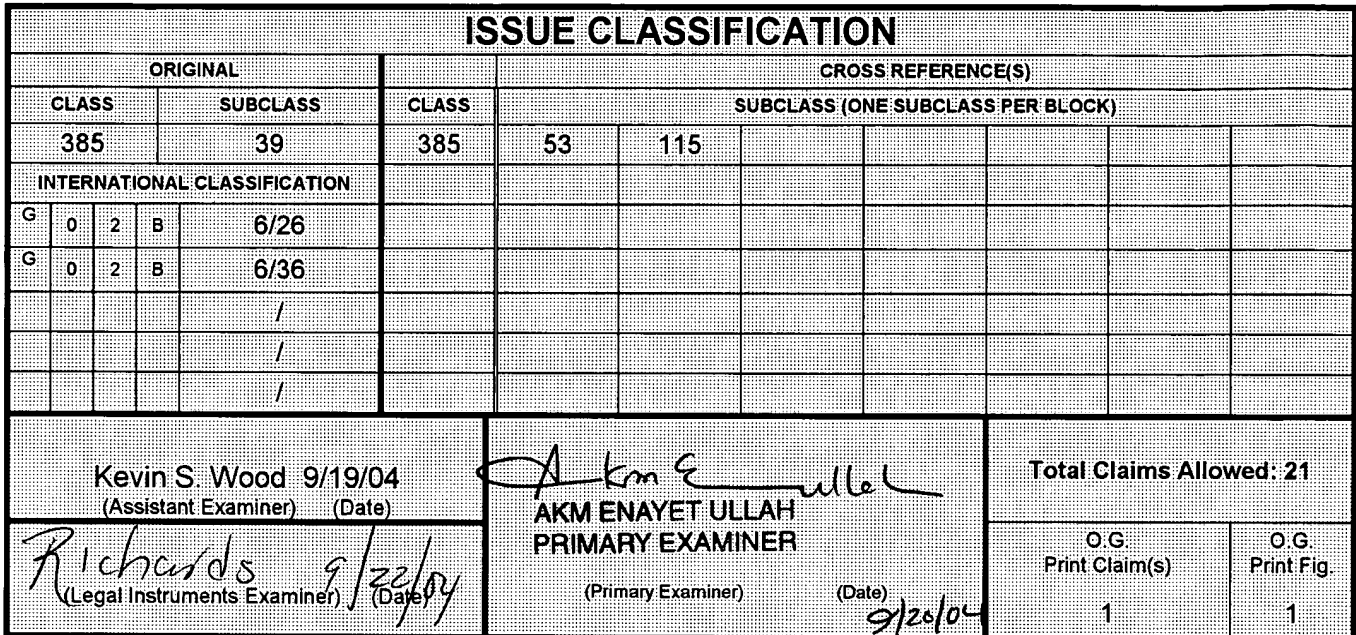 ISSUE CLASSIFICATION
ORIGINAL CROSS REFERENCE(S)
CLASS SUBCLASS CLASS SUBCLASS (ONE SUBCLASS PER BLOCK)
385 39 385 53 115
INTERNATIONAL CLASSIFICATION
G 0 2 B 6/26
G 0 2 B 6/36
/
/
/
Kevin S. Wood 9/19/04
(Assistant Examiner) (Date)
Richards 9/22/04
(Legal Instruments Examiner) (Date)
Akm E Ullah
AKM ENAYET ULLAH
PRIMARY EXAMINER
(Primary Examiner) (Date)
9/20/04
Total Claims Allowed: 21
O.G.
Print Claim(s)
1
O.G.
Print Fig.
1